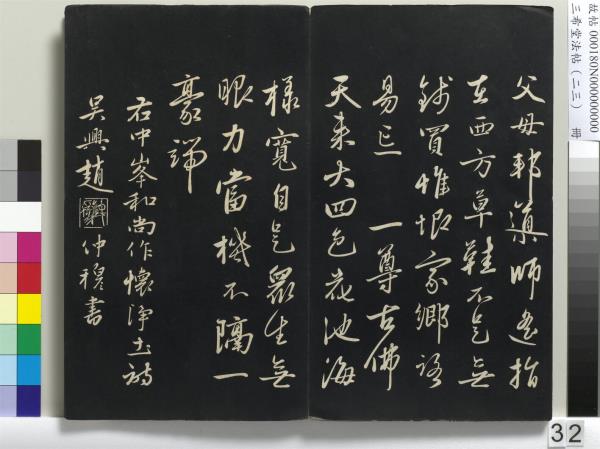 故帖 000180N000000000
三希堂法帖(二三) 冊
父母邦導師遙指
在西方草鞋不是無
錢買惟恨家鄉路
易忘 一尊古佛
天來大四色花池海
樣寬自是眾生無
眼力當機不隔一
豪端
右中峯和尚作懷淨土詩
吳興趙 仲穆書
32